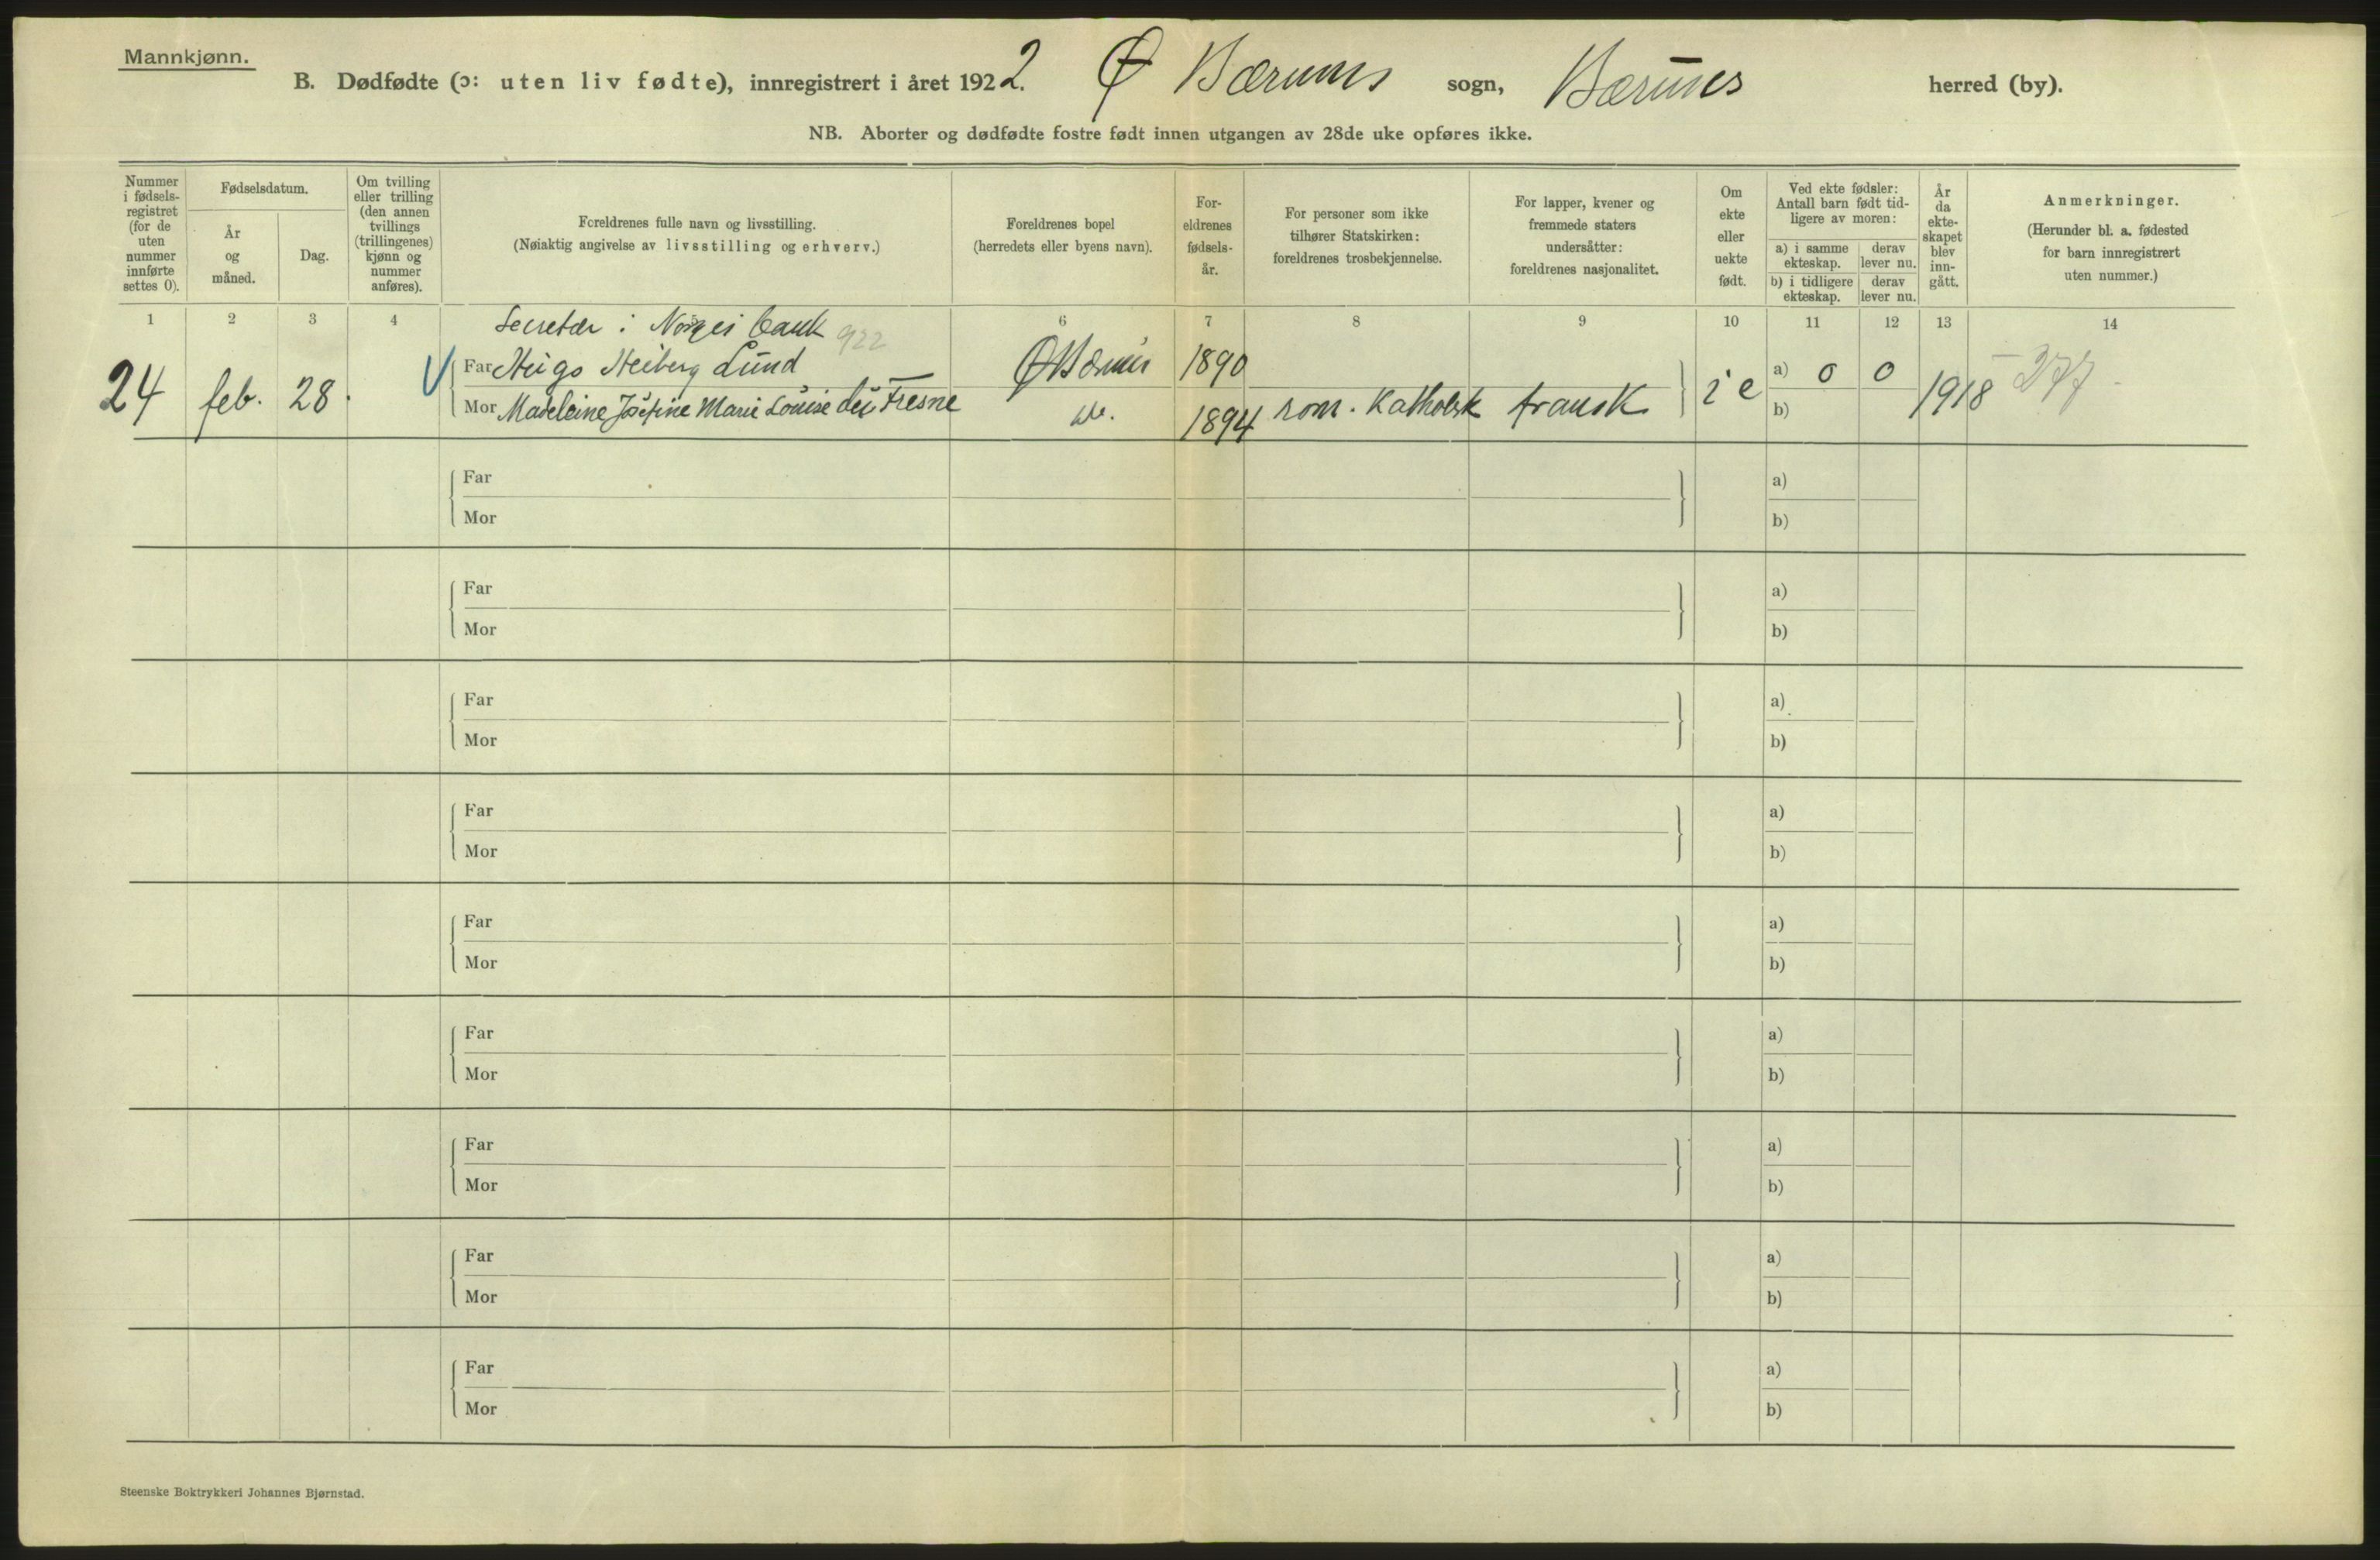 Mannkjønn.
B. Dødfødte (ɔ: uten liv fødte), innregistrert i året 1922. Ø Bærums sogn, Bærums herred (by).
NB. Aborter og dødfødte fostre født innen utgangen av 28de uke opføres ikke.
Nummer i fødsels-registret (for de uten nummer innførte settes 0).
Fødselsdatum.
År og måned.
Dag.
Om tvilling eller trilling (den annen tvillings (trillingenes) kjønn og nummer anføres).
Foreldrenes fulle navn og livsstilling.
(Nøiaktig angivelse av livsstilling og erhverv.)
Foreldrenes bopel
(herredets eller byens navn).
For-eldrenes fødsels-år.
For personer som ikke tilhører Statskirken: foreldrenes trosbekjennelse.
For lapper, kvener og fremmede staters undersåtter: foreldrenes nasjonalitet.
Om ekte eller uekte født.
Ved ekte fødsler: Antall barn født tid-ligere av moren:
a) i samme ekteskap. derav lever nu.
b) i tidligere ekteskap. derav lever nu.
År da ekte-skapet blev inn-gått.
Anmerkninger.
(Herunder bl. a. fødested for barn innregistrert uten nummer.)
1 2 3 4 6 7 8 9 10 11 12 13 14
Secretær i Norges bank 922
24 feb. 28. Far Hugo Heiberg Lund Ø Bærum 1890 i e a) 0 0 1918 277
Mor Madeleine Josefine Marie Louise du Fresne do. 1894 rom. Katholsk fransk b)
Far a)
Mor b)
Far a)
Mor b)
Far a)
Mor b)
Far a)
Mor b)
Far a)
Mor b)
Far a)
Mor b)
Far a)
Mor b)
Far a)
Mor b)
Far a)
Mor b)
Steenske Boktrykkeri Johannes Bjørnstad.